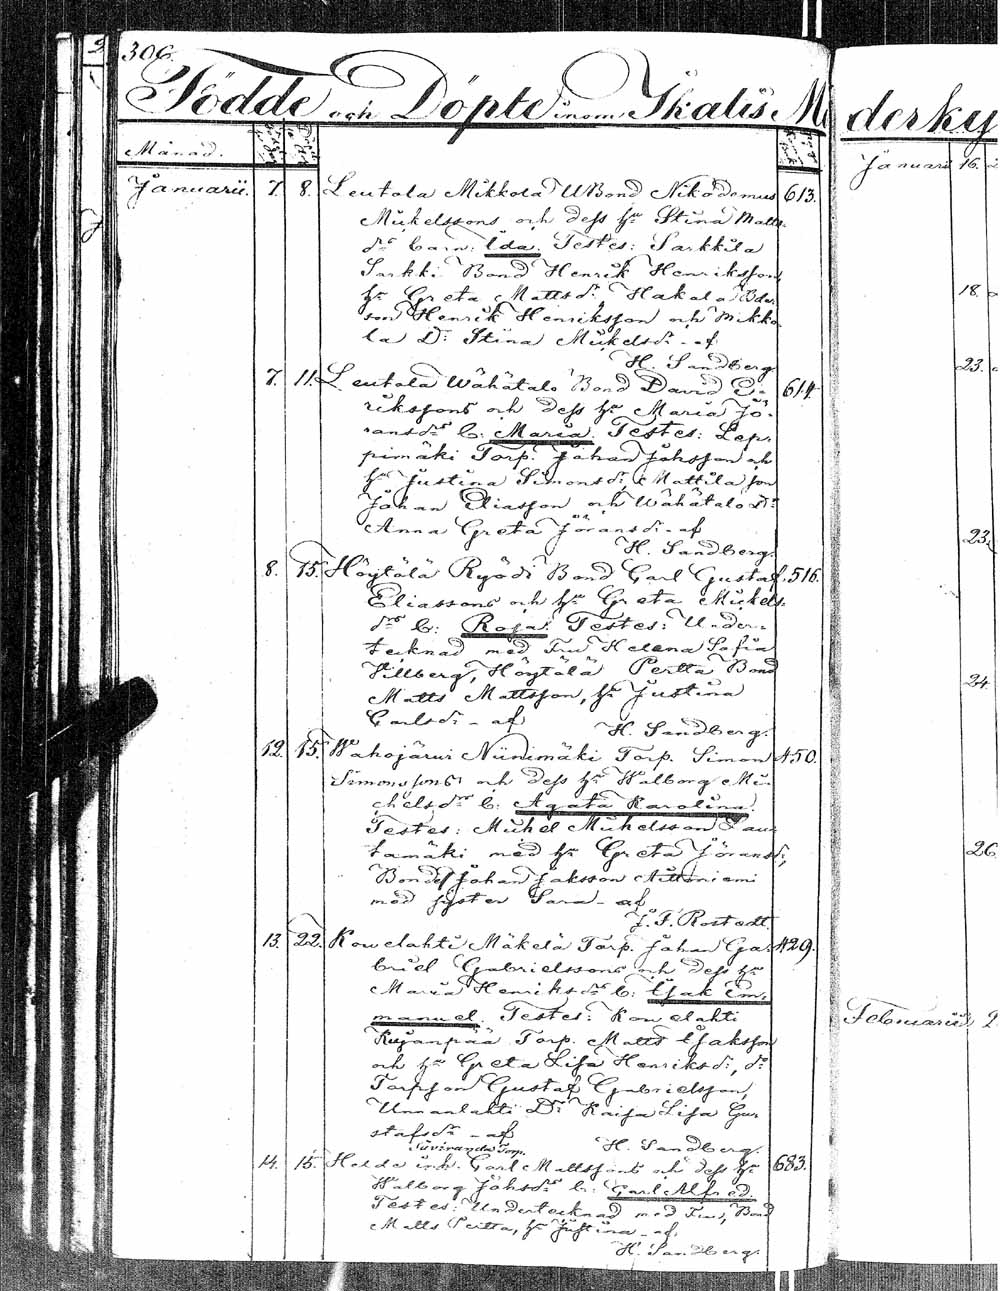 306.
Födde och Döpte inom Ikalis Mo
Månad.
Januarii. 7. 8. Leutola Mikkola UBond Nikodemus 613.
Mickelssons och dess hu Stina Matts-
dr barn: Ida. Testes: Sarkkila
Sarkki Bond Henrik Henriksson,
hu Greta Mattsdr, Hakala Bde-
son Henrik Henriksson och Mikko-
la Dr Stina Mickelsdr - af
H. Sandberg
7. 11. Leutola Wähätalo Bond David E- 614.
rikssons och dess hu Maria Jö-
ransdrs b: Maria. Testes: Lep-
pimäki Torp. Johan Johsson och
hu Justina Simonsdr, Mattila son
Johan Eliasson och Wähätalo Dr
Anna Greta Jöransdr - af
H. Sandberg.
8. 15. Höytölä Ryödi Bond Carl Gustaf 516.
Eliassons och hu Greta Mickels-
drs b: Rosa. Testes: Under-
tecknad med Fru Helena Sofia
Hillberg, Höytölä Pertta Bond
Matts Mattsson, hu Justina
Carlsdr - af
H. Sandberg.
12. 15. Wahojärvi Niinimäki Torp. Simon 450.
Simonssons och dess hu Walborg Mi-
chelsdrs b: Agata Karolina.
Testes: Michel Michelsson Lau-
tamäki med hu Greta Jöransdr,
Bonde Johan Jaksson Aittoniemi
med syster Sara - af
J. F. Rostedt.
13. 22. Kowelahti Mäkelä Torp. Johan Ga- 429.
briel Gabrielssons och dess hu
Maria Henriksdrs b: Isak Em-
manuel. Testes: Kowelahti
Kujanpää Torp. Matts Isaksson
och hu Greta Lisa Henriksdr, do
Torpson Gustaf Gabrielsson,
Unnanlahti Dr Kaisa Lisa Gu-
stafsdr - af
H. Sandberg.
Torp.
14. 15. Carl Mattssons och dess hu 683.
Walborg Johsdrs b: Carl Alfred.
Testes: Undertecknad med Fru, Bond
Matts Pertta, hu Justina - af
H. Sandberg.
derky
Januarii 16.
18.
23.
23.
24.
26
Februarii 2